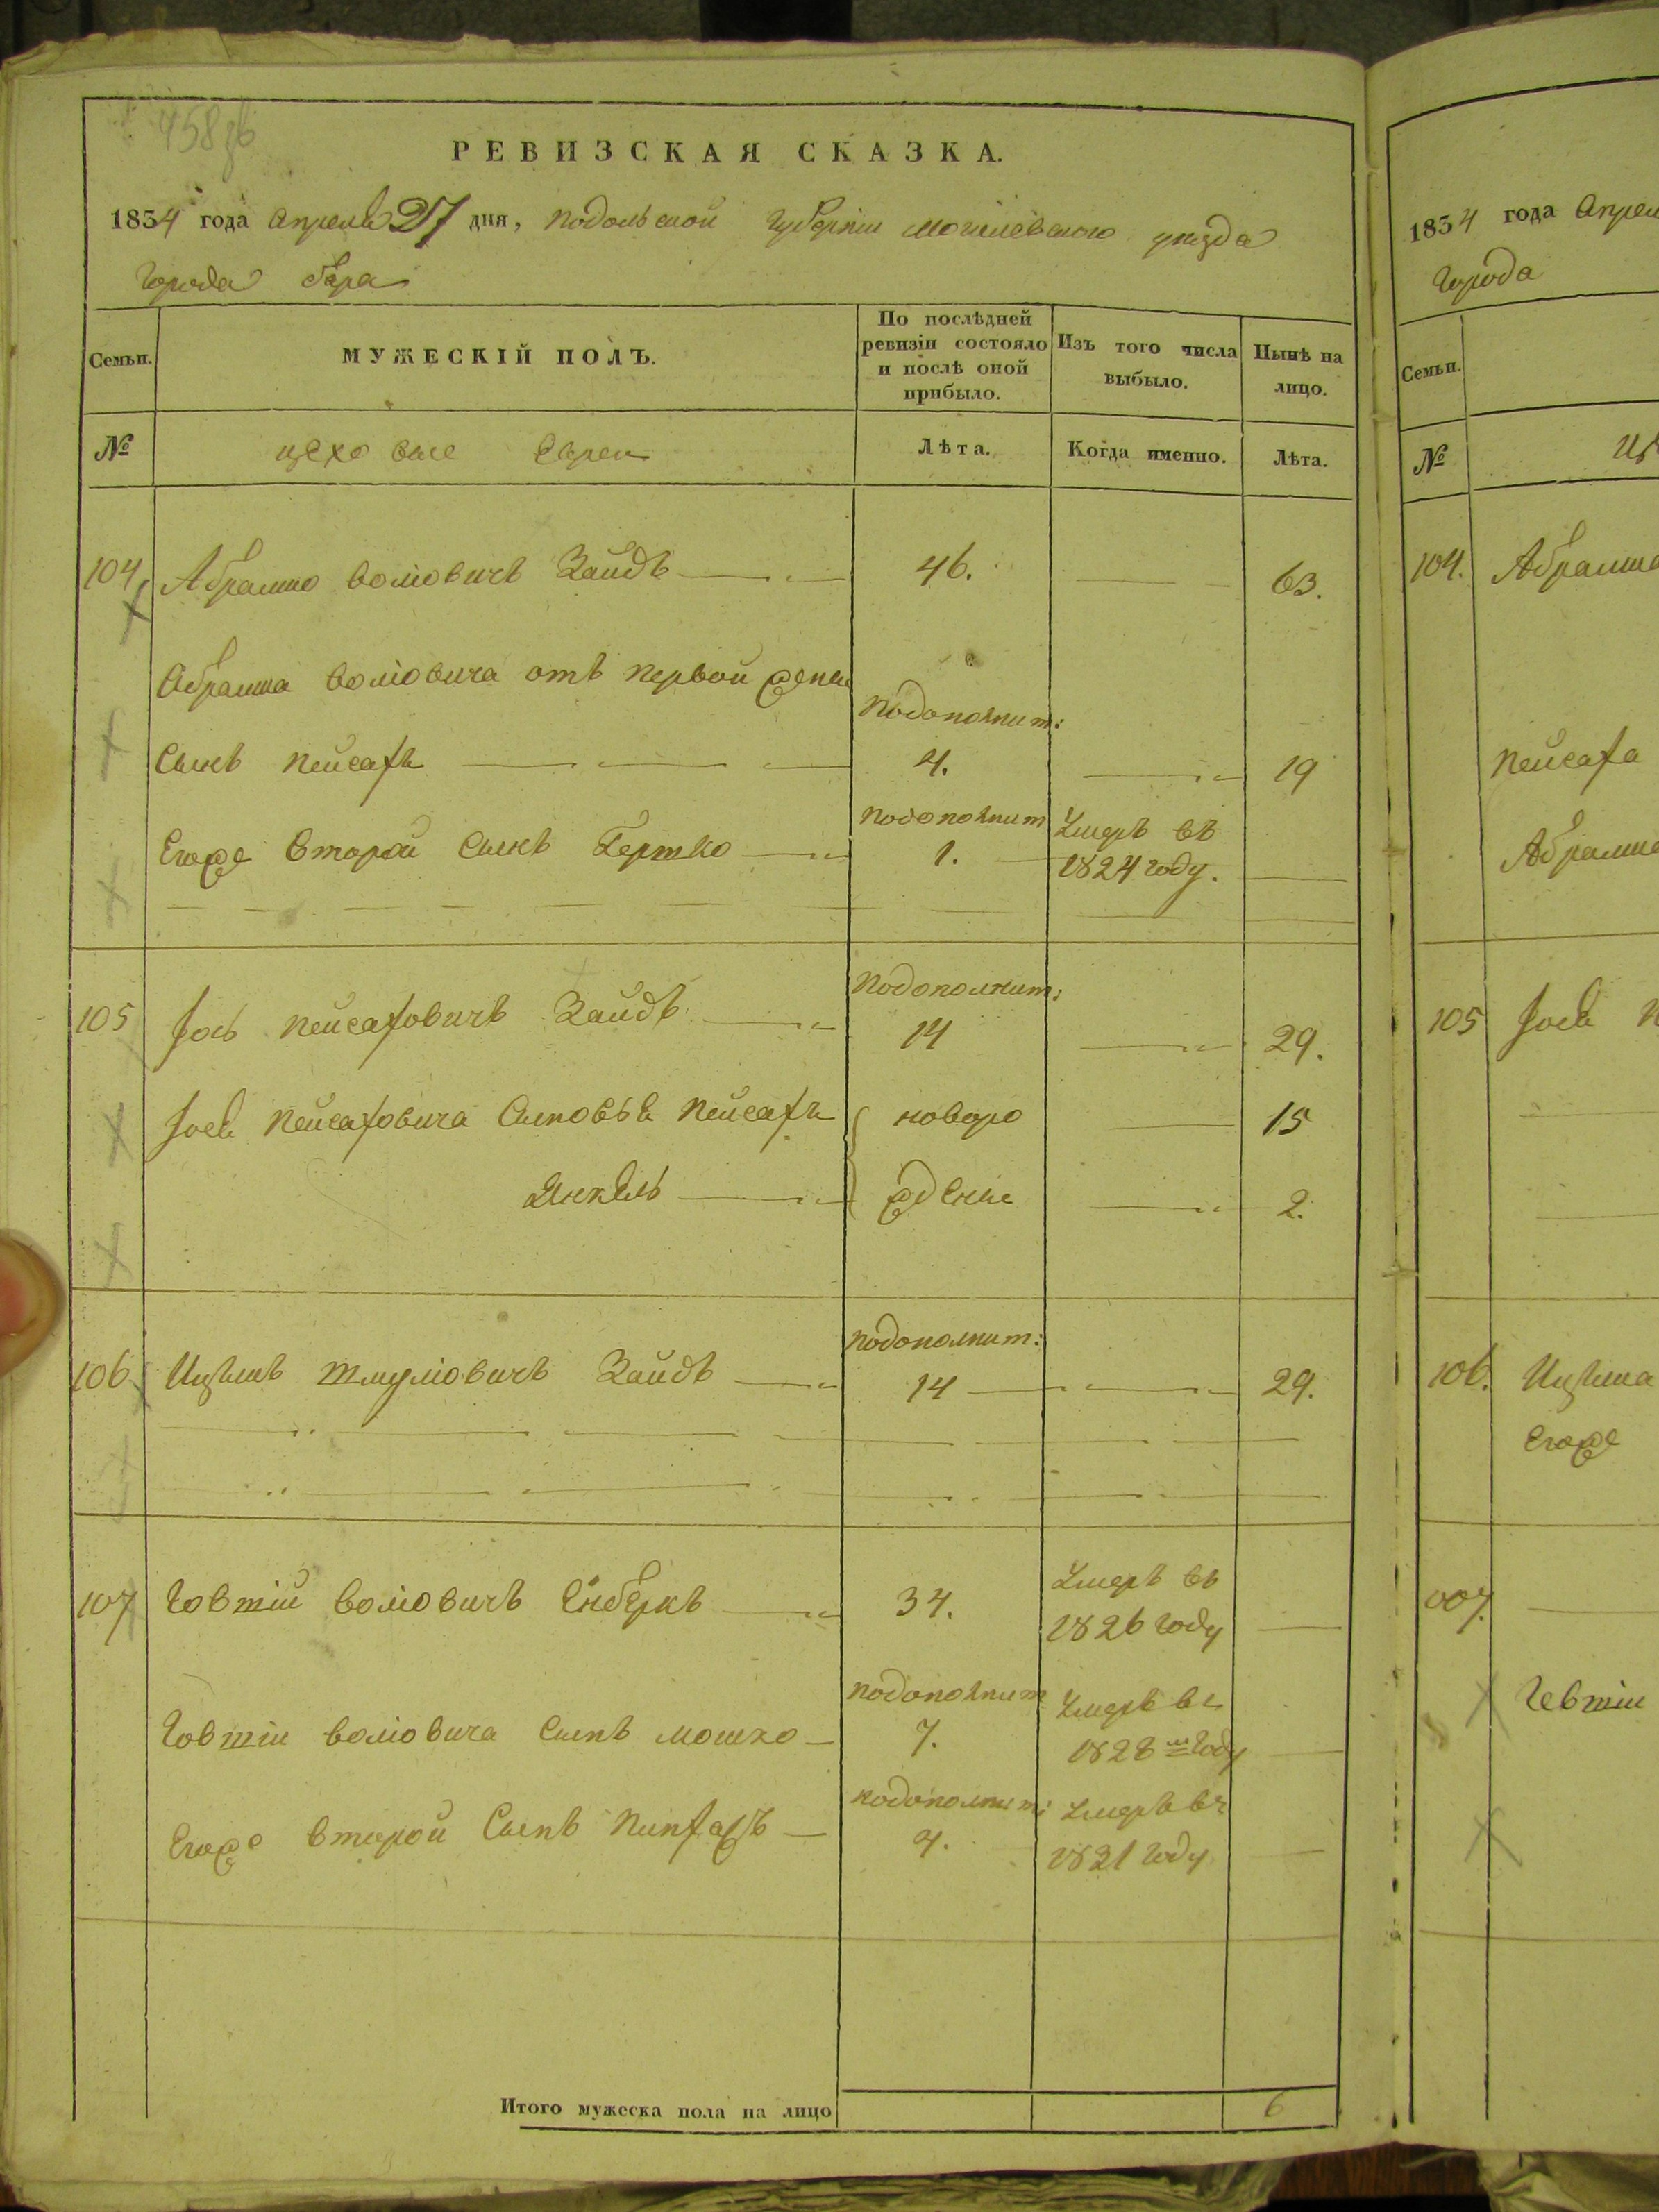 458 об
РЕВИЗСКАЯ СКАЗКА.
1834 года Апреля 27 дня, Подольской Губерніи Могилевского уезда
Города Бара
Семьи.
МУЖЕСКІЙ ПОЛЪ.
По послѣдней ревизіи состояло и послѣ оной прибыло.
Изъ того числа выбыло.
Нынѣ на лицо.
№
цеховые Евреи
Лѣта.
Когда именно.
Лѣта.
104. Абрамко Волтовичъ Зайдъ 46. 63.
Абрамка Волтовича отъ первой жены
Сынъ Пейсахъ подополнит: 4. 19
Егоже второй Сынъ Гершко подополнит 1. Умеръ въ 1824 году.
105 Іось Пейсаховичъ Зайдъ подополнит: 14 29.
Іося Пейсаховича Сыновья Пейсахъ новоро 15
Янкель жденые 2.
106 Ицыкъ Шмулiовичъ Зайдъ подополнит: 14 29.
107 Говшій Волiовичъ 34. Умеръ въ 1826 году
Говшіи Волiовича Сынъ Мошко подополнит 7. Умеръ въ 1828 году
Егоже второй Сынъ Пинхасъ подополнит: 4. Умеръ въ 1821 году
Итого мужеска пола на лицо 6
1834 года Апрел
Города
Семьи.
№
104. Абрамка
Пейсаха
Абрамка
105 Іося
106. Ицыка
Егоже
007.
Гевшіи